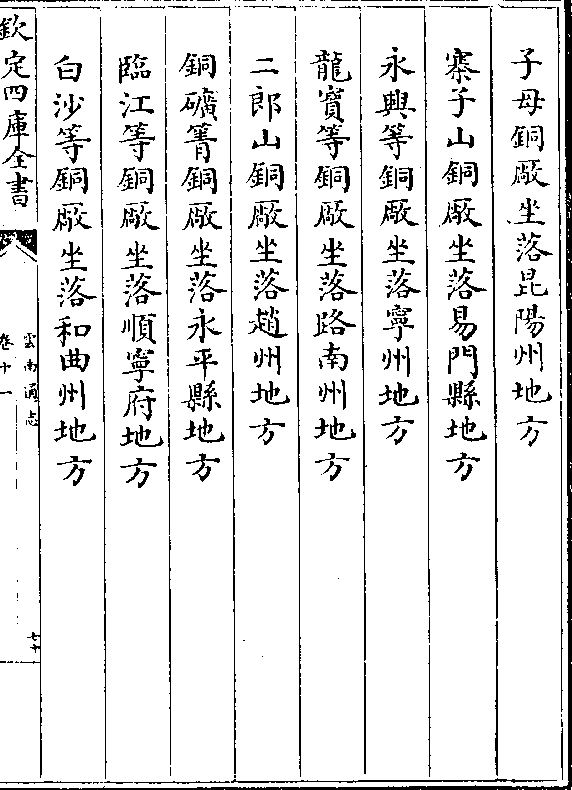 子母銅厰坐落昆陽州地方
寨子山銅厰坐落易門縣地方
永興等銅厰坐落寧州地方
龍寶等銅厰坐落路南州地方
二郎山銅厰坐落趙州地方
銅礦箐銅厰坐落永平縣地方
臨江等銅厰坐落順寧府地方
白沙等銅厰坐落和曲州地方
欽定四庫全書
雲南通志
卷十一
七十